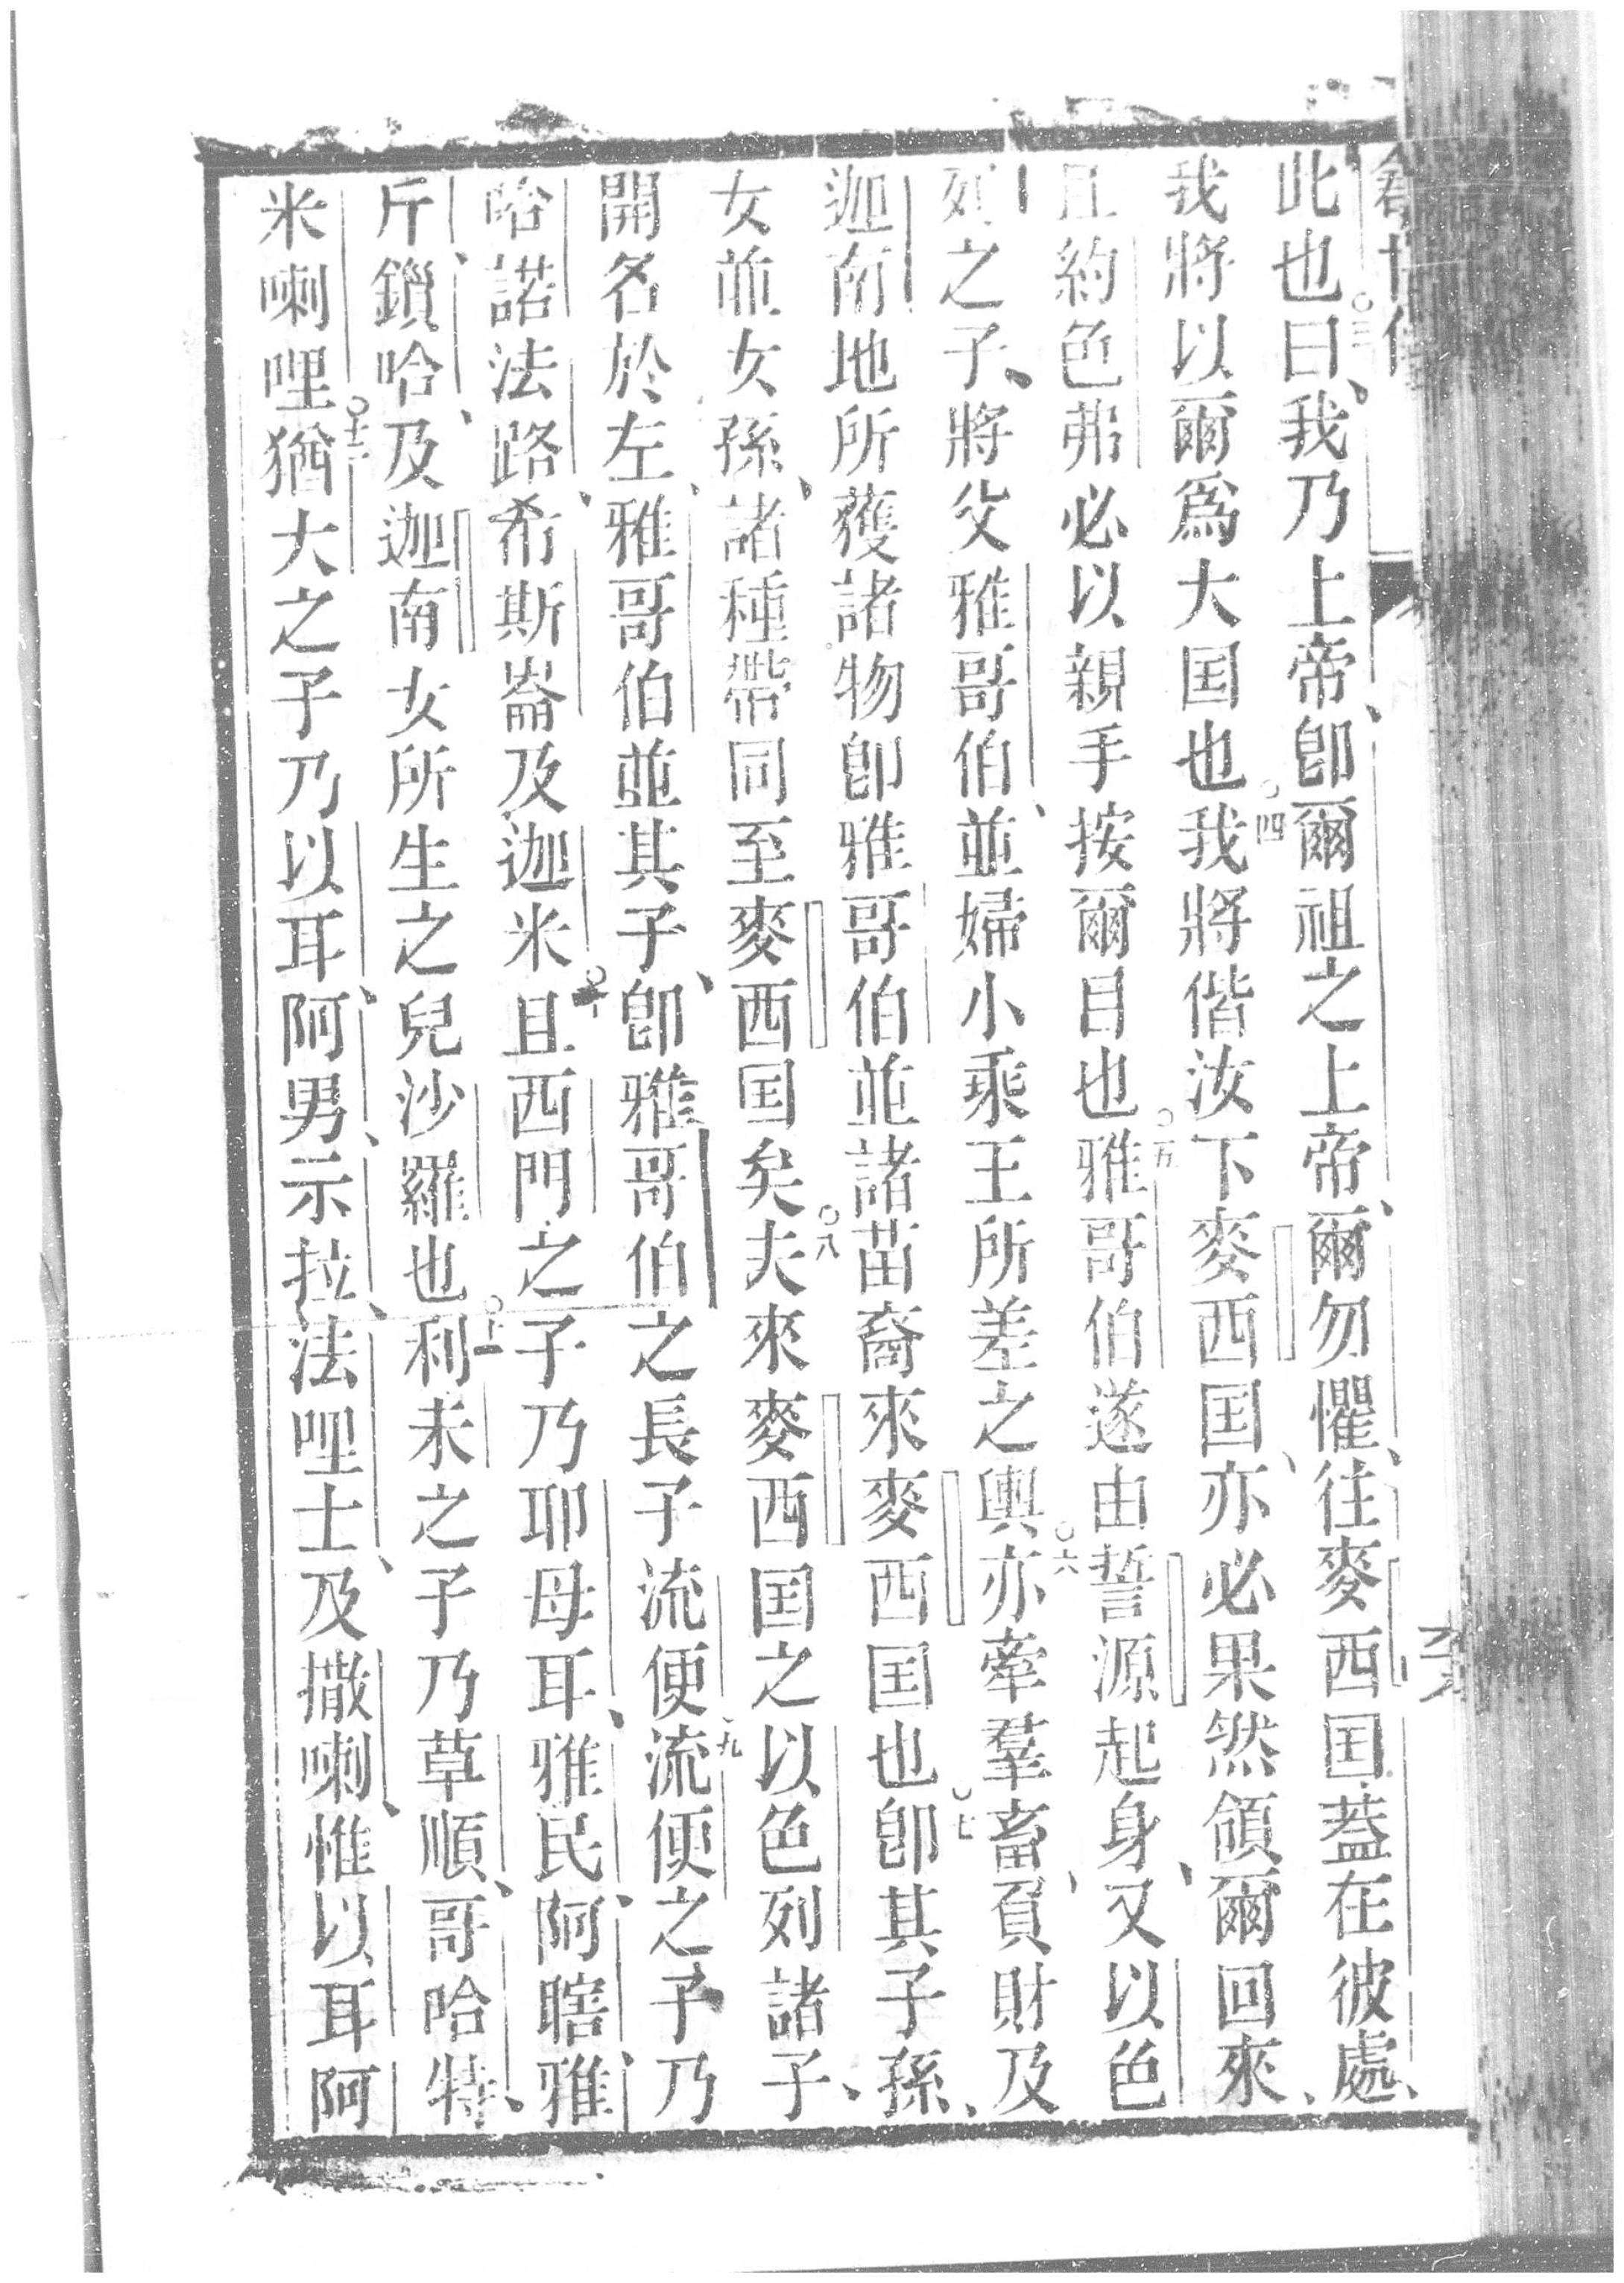 此也○三曰我乃上帝、卽爾祖之上帝、爾勿懼、往麥西国、葢在彼處、
我將以爾爲大国也○四我將偕汝下麥西国、亦必果然領爾回來、
且約色弗必以親手按爾目也○五雅哥伯遂由誓源起身、又以色
列之子、將父雅哥伯、並婦小乘王所差之輿○六亦牽羣畜、負財及
迦南地所獲諸物卽雅哥伯並諸苗裔來麥西国也○七卽其子孫、
女並女孫、諸種帶同至麥西国矣○八夫來麥西国之以色列諸子、
開名於左、雅哥伯並其子、卽雅哥伯之長子流便○九流便之子乃
哈諾法路、希斯崙及迦米○十且西門之子乃耶母耳、雅民、阿瞎、雅
斤、鎖哈、及迦南女所生之兒沙羅也○十一利未之子乃草順、哥哈特、
米喇哩○十二猶大之子乃以耳、阿男、示拉、法哩士、及撒喇、惟以耳阿